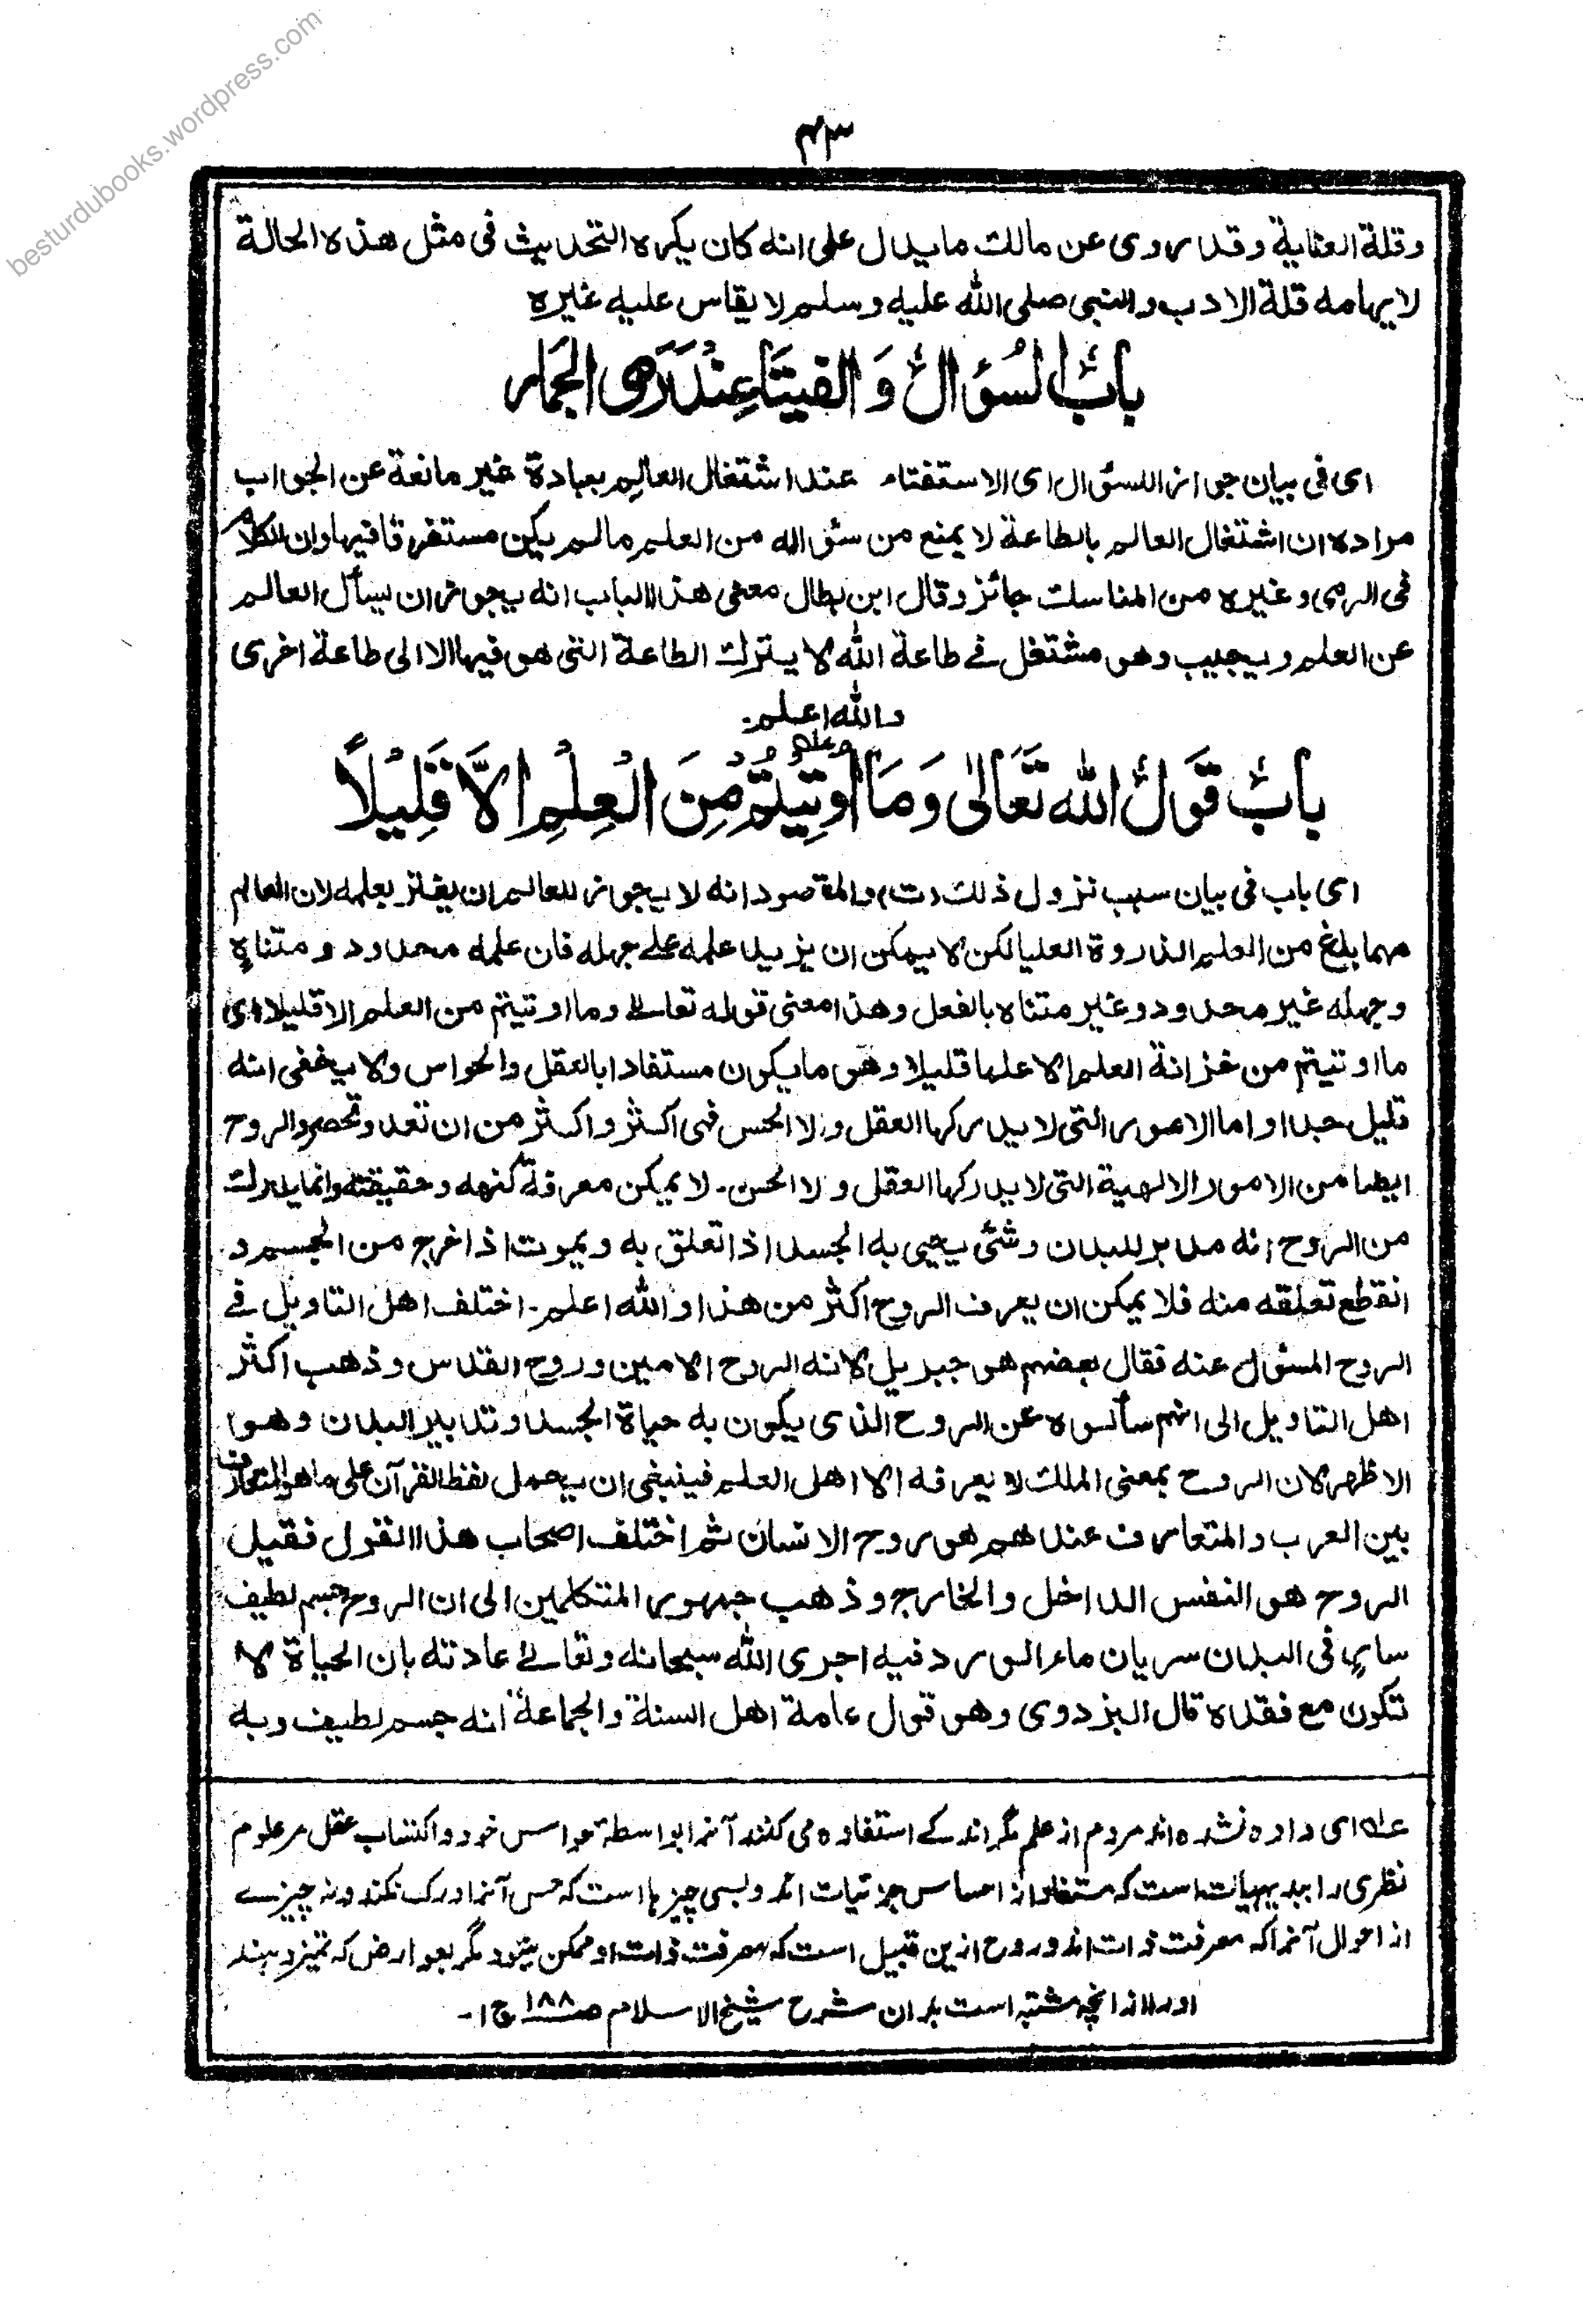 besturdubooks.wordpress.com
وقلة العناية وقد روى عن مالك ما يدل على انه كان يكره التحديث فى مثل هذه الحالة
لايهامه قلة الادب والنبى صلى الله عليه وسلم لا يقاس عليه غيره
بَابُ السُّؤَالِ وَالفيتَا عِنْدَ رَمْىِ الجَمار
اى فى بيان جواز السؤال اى الاستفتاء عند اشتغال العالم بعبادة غير مانعة عن الجواب
مراده ان اشتغال العالم بالطاعة لا يمنع من سؤاله من العلم مالم يكن مستغرقا فيها وان الكلام
فى الرمى وغيره من المناسك جائز وقال ابن بطال معنى هذا الباب انه يجوز ان يسأل العالم
عن العلم ويجيب وهو مشتغل فے طاعة الله لا يترك الطاعة التى هو فيها الا الى طاعة اخرى
والله اعلم۔
بَابُ قَولِ اللهِ تَعَالٰى وَمَا اُوتِيتُمْ مِنَ الْعِلْمِ اِلَّا قَلِيْلًا
اى باب فى بيان سبب نزول ذلك (ت) والمقصود انه لا يجوز للعالم ان يغتر بعلمه لان العالم
مهما بلغ من العلم الذروة العليا لكن لا يمكن ان يزيد علمه علے جهله فان علمه محدود و متناهٍ
وجهله غير محدود وغير متناه بالفعل وهذا معنى قوله تعالے وما اوتيتم من العلم الا قليلا اى
ما اوتيتم من خزانة العلم الا علما قليلا وهو ما يكون مستفادا بالعقل والحواس ولا يخفى انه
قليل جدا و اما الامور التى لا يدركها العقل ولا الحس فهى اكثر واكثر من ان تعد وتحصر والروح
ايضا من الامور الالهية التى لا يدركها العقل ولا الحس۔ لا يمكن معرفة كنهه وحقيقته وانما يدرك
من الروح انه مدبر للبدن وشئ يحيى به الجسد اذا تعلق به ويموت اذا خرج من الجسم و
انقطع تعلقه منه فلا يمكن ان يعرف الروح اكثر من هذا و الله اعلم۔ اختلف اهل التاويل فے
الروح المسئول عنه فقال بعضهم هو جبريل لانه الروح الامين وروح القدس وذهب اكثر
اهل التاويل الى انهم سألوه عن الروح الذى يكون به حياة الجسد وتدبير البدن وهوا
الاظهر لان الروح بمعنى الملك لا يعرفه الا اهل العلم فينبغى ان يحمل لفظ القرآن على ما هو المتعارف
بين العرب والمتعارف عندهم هو روح الانسان ثم اختلف اصحاب هذا القول فقيل
الروح هو النفس الداخل والخارج وذهب جمهور المتكلمين الى ان الروح جسم لطيف
سارٍ فى البدن سريان ماء الورد فيه اجرى الله سبحانه وتعالے عادته بان الحياة لا
تكون مع فقده قال البزدوى وهو قول عامة اهل السنة والجماعة انه جسم لطيف وبه
اى داده نشده اند مردم از علم مگر اندکے استفاده مى کنند آنرا بواسطۂ حواس خود و اکتساب عقل مر علوم
نظرى را ببديهيات است کہ مستفاد از احساس جزئيات اند و بسى چيزها است کہ حس آنرا درک نکند ونہ چيزے
از احوال آنرا کہ معرفت ذات اند و روح ازين قبيل است کہ معرفت ذات او ممکن نشود مگر بعوارض کہ تميز دہند
اورا از انچہ مشتبہ است بدان شرح شيخ الاسلام ص۱۸۸ ج۱۔